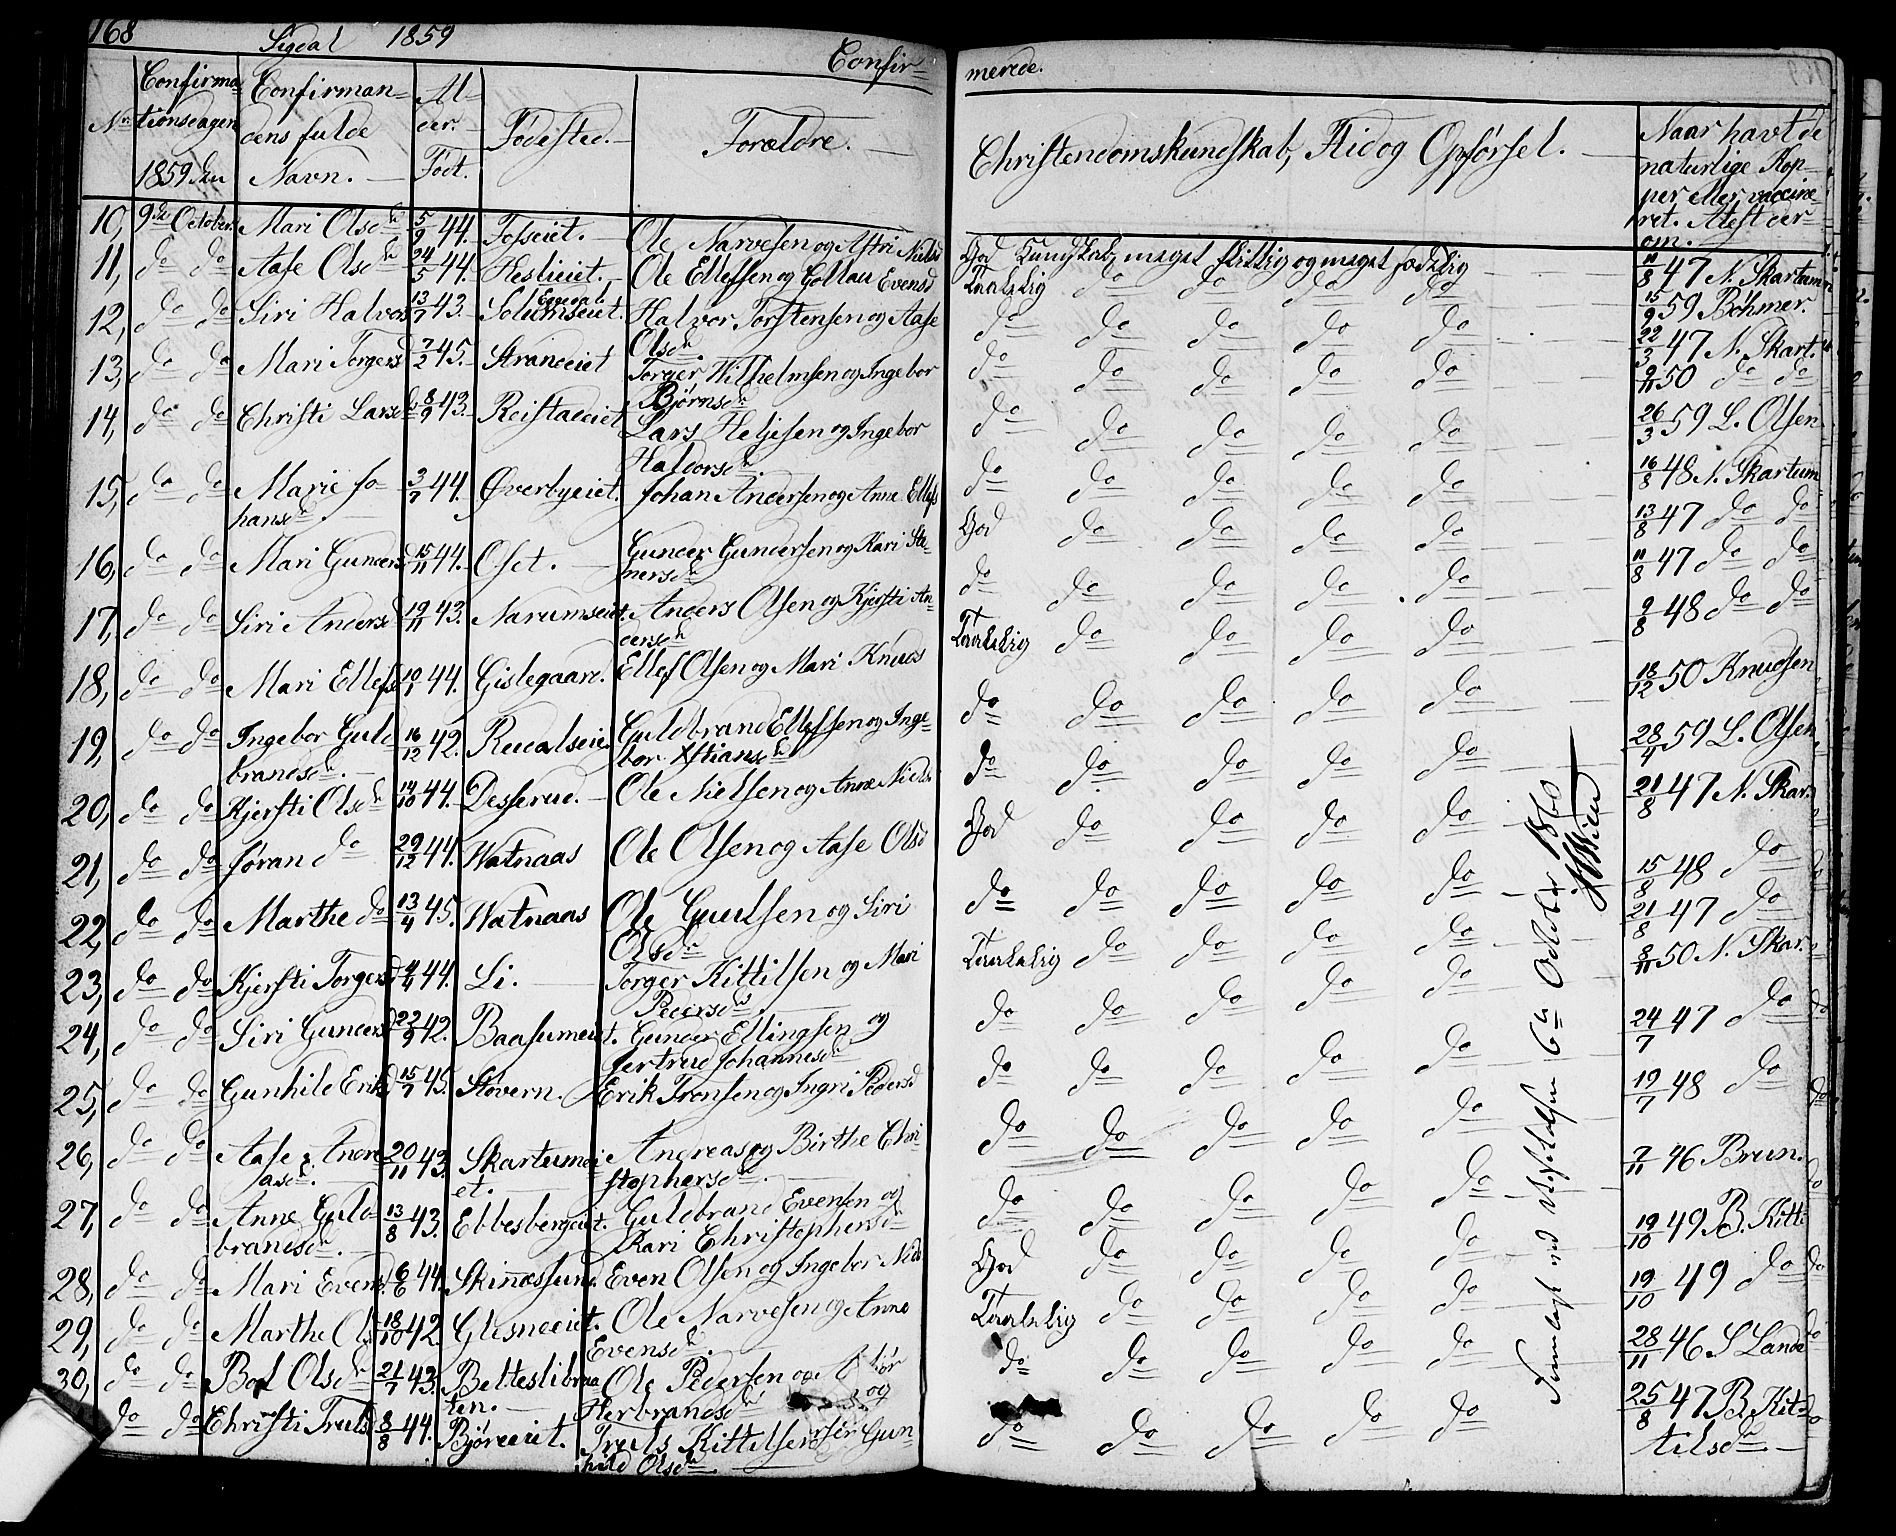 168 Sigdal 1859 Confir=
merede.
No Confirma=tionsdagen 1859 den
Confirman=dens fulde Navn.
Al=der. Født.
Fødested.
Forældre.
Christendomskundskab, Flid og Opførsel.
Naar havt de naturlige Kopper eller vaccineret. Attest derom.
10, 9de October Mari Olsdr 5/9 44. Fosseiet. Ole Narvesen og Astri Nielsd God Kundskab, meget flittig og meget sædelig 11/8 47 N. Skartum
11, do do Aase Olsdr 24/5 44. Hesleiet. Ole Ellefsen og Gollau Evensd Taalelig do do do do 15/9 59 Bøhmer.
12, do do Siri Halvors 13/7 43. Solumseiet. Eggedal Halvor Torstensen og Aase Olsdr do do do do do 22/3 47 N. Skart.
13, do do Mari Torgersd 7/2 45. Strandeiet Torger Wilhelmsen og Ingebor Bjørnsdr do do do do do 9/11 50 do do
14, do do Christi Larsdr 8/9 43. Reistadeiet Lars Heljesen og Ingebor Haldorsdr. do do do do do 26/3 59 L. Olsen
15, do do Marie Jo=hansdr. 3/7 44. Øverbyeiet. Johan Andersen og Anne Ellefs do do do do do 16/8 48 N. Skartum
16, do do Mari Gunders 15/11 44. Oset. Gunder Gundersen og Kari Ste=nersdr God do do do do 13/8 47 do do
17, do do Siri Andersd 19/11 43. Narumseiet. Anders Olsen og Kjersti An=dersdr do do do do do 11/8 47 do do
18, do do Mari Ellefsd 10/1 44. Gislegaard. Ellef Olsen og Mari Knuds Taalelig do do do do 9/8 48 do do
19, do do Ingebor Guld=brandsdr. 16/12 42. Guldbrand Ellefsen og Inge=bor Xstiansdr do do do do do 18/12 50 Knudsen
20, do do Kjersti Olsdr 14/10 44. Desserud. Ole Nielsen og Anne Niels do do do do do 28/4 59 L. Olsen
21, do do Jøran do 29/12 44. Watnaas Ole Olsen og Aase Olsd God do do do do 21/8 47 N. Skar.
22, do do Marthe do 13/4 45. Watnaas Ole Guulsen og Siri Olsdr do do do do do 15/8 48 do
23, do do Kjersti Torgersd 44. Li. Torger Kittilsen og Mari Pedersdr. Taalelig do do do do 21/8 47 do
24, do do Siri Gundersd 22/9 42. Baasumeiet. Gunder Ellingsen og Jertrud Johannesdr do do do do do 8/11 50 N. Skar.
25, do do Gunhild Eriks 15/7 45. Støvern. Erik Tronsen og Ingri Pedersd do do do do do 24/7 47 do
26, do do Aase Andre=asdr. 20/11 43. Skartumei=et. Andreas og Birthe Chri=stophersdr. do do do do do 19/7 48 do
27, do do Anne Guld=brandsdr. 13/8 43. Ebbesbergeiet. Guldbrand Evensen og Kari Christophersdr do do do do do 7/11 46 Brun.
28, do do Mari Evens. 6/6 44. Skindssund. Even Olsen og Ingebor Niels God do do do do 19/10 49 B. Kitti
29, do do Marthe Ols 18/10 42. Glesneeiet. Ole Narvesen og Anne Evensdr. Taalelig do do do do 19/10 49 do
30, do do Olsdr 21/7 43. Betteslibraaten. Ole Pedersen og Herbrandsdr do do do do do 28/11 46 S Lande
do do Christi Truls 8/8 44. Bjøreeiet. Truls Kittelsen og Gun=hild Olsdr do do do do do 25/8 47 B. Kittilsdr.
Fremlagt ved Visitatsen 6te October 1860